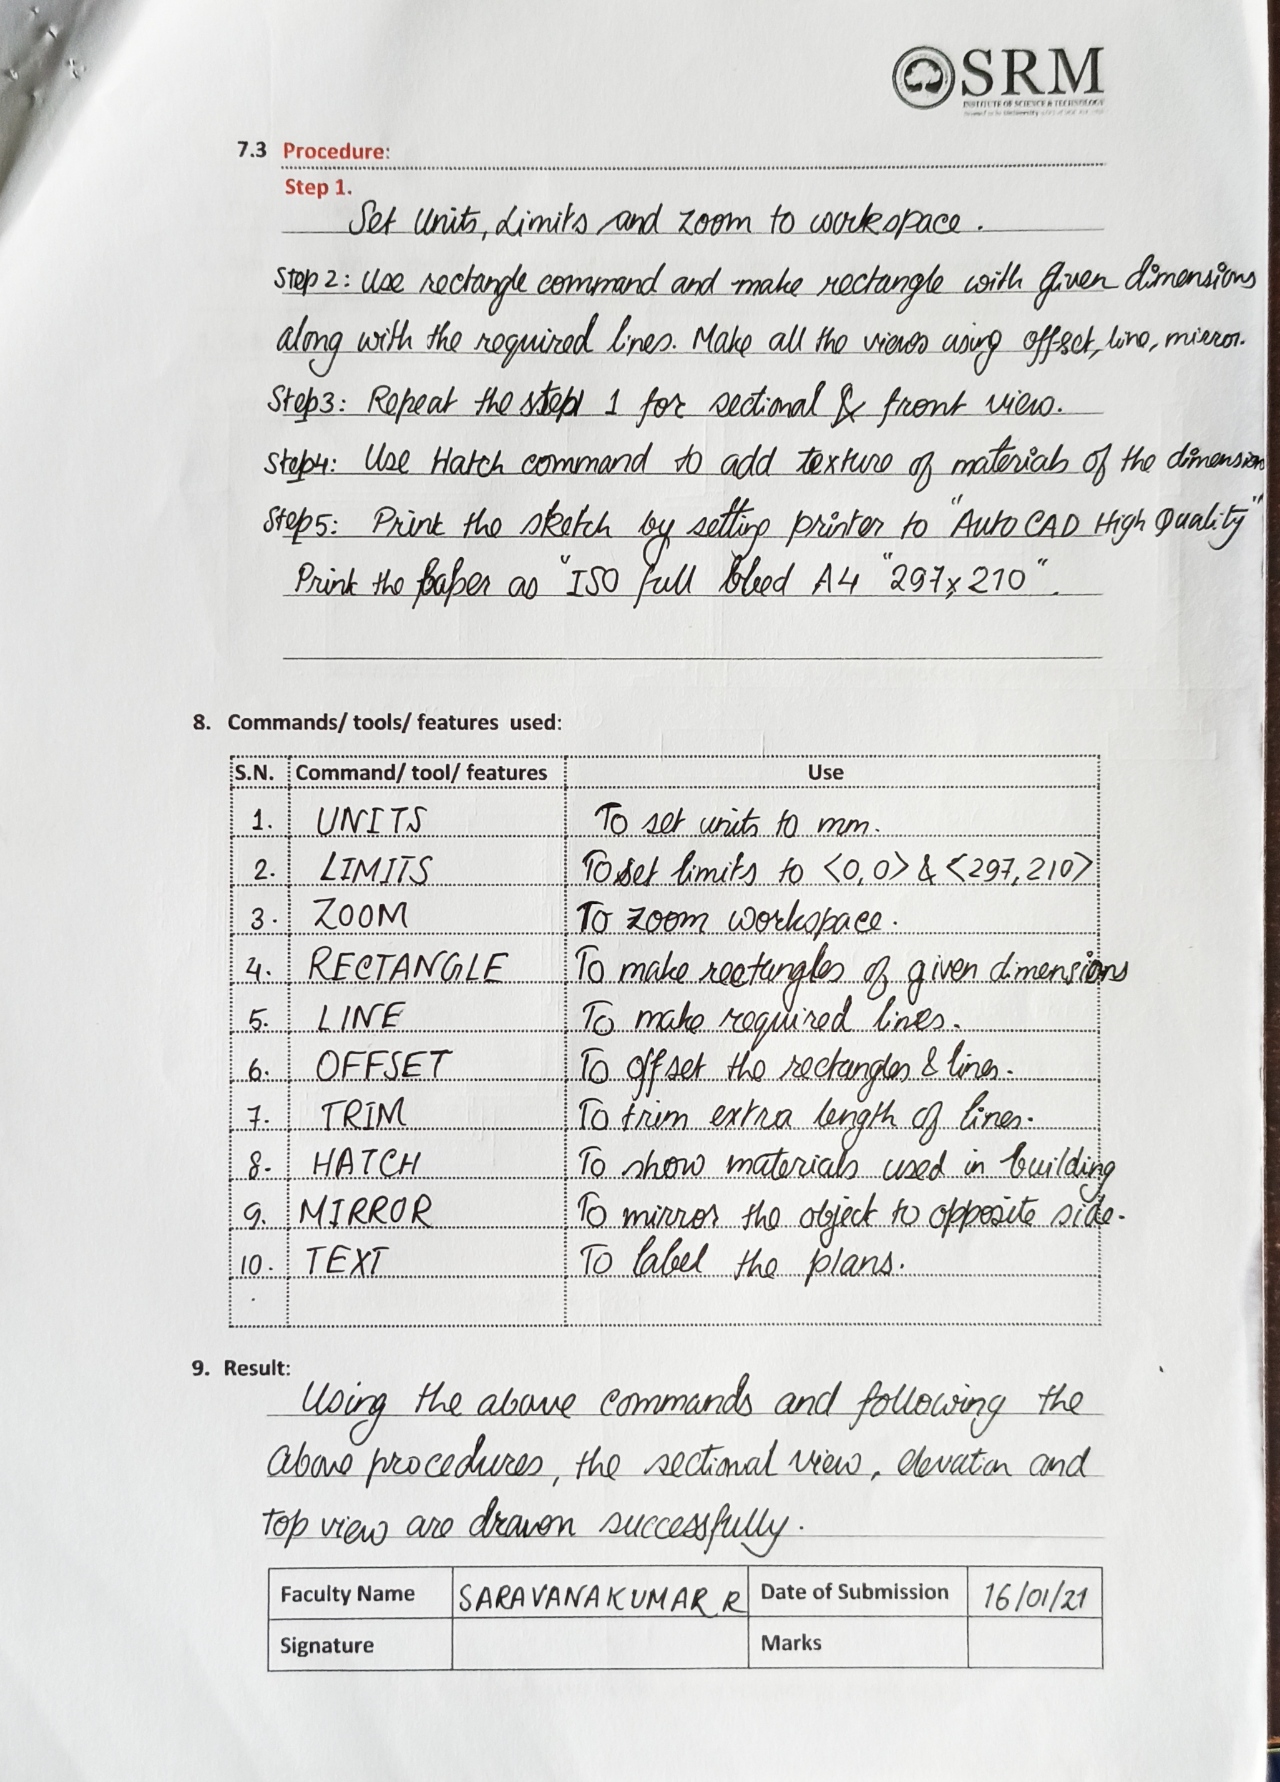 SRM
INSTITUTE OF SCIENCE & TECHNOLOGY
7.3 Procedure:
Step 1.
Set Units, Limits and Zoom to workspace.
Step 2: Use rectangle command and make rectangle with given dimensions
along with the required lines. Make all the views using offset, line, mirror.
Step3: Repeat the step 1 for sectional & front view.
Step4: Use Hatch command to add texture of materials of the dimension
Step5: Print the sketch by setting printer to "Auto CAD High Quality"
Print the paper as "ISO full bleed A4 "297x210".
8. Commands/ tools/ features used:
S.N. Command/ tool/ features Use
1. UNITS To set units to mm.
2. LIMITS To set limits to <0,0> & <297,210>
3. ZOOM To zoom workspace.
4. RECTANGLE To make rectangles of given dimensions
5. LINE To make required lines.
6. OFFSET To offset the rectangles & lines.
7. TRIM To trim extra length of lines.
8. HATCH To show materials used in building
9. MIRROR To mirror the object to opposite side.
10. TEXT To label the plans.
9. Result:
Using the above commands and following the
above procedures, the sectional view, elevation and
top view are drawn successfully.
Faculty Name SARAVANAKUMAR R Date of Submission 16/01/21
Signature Marks